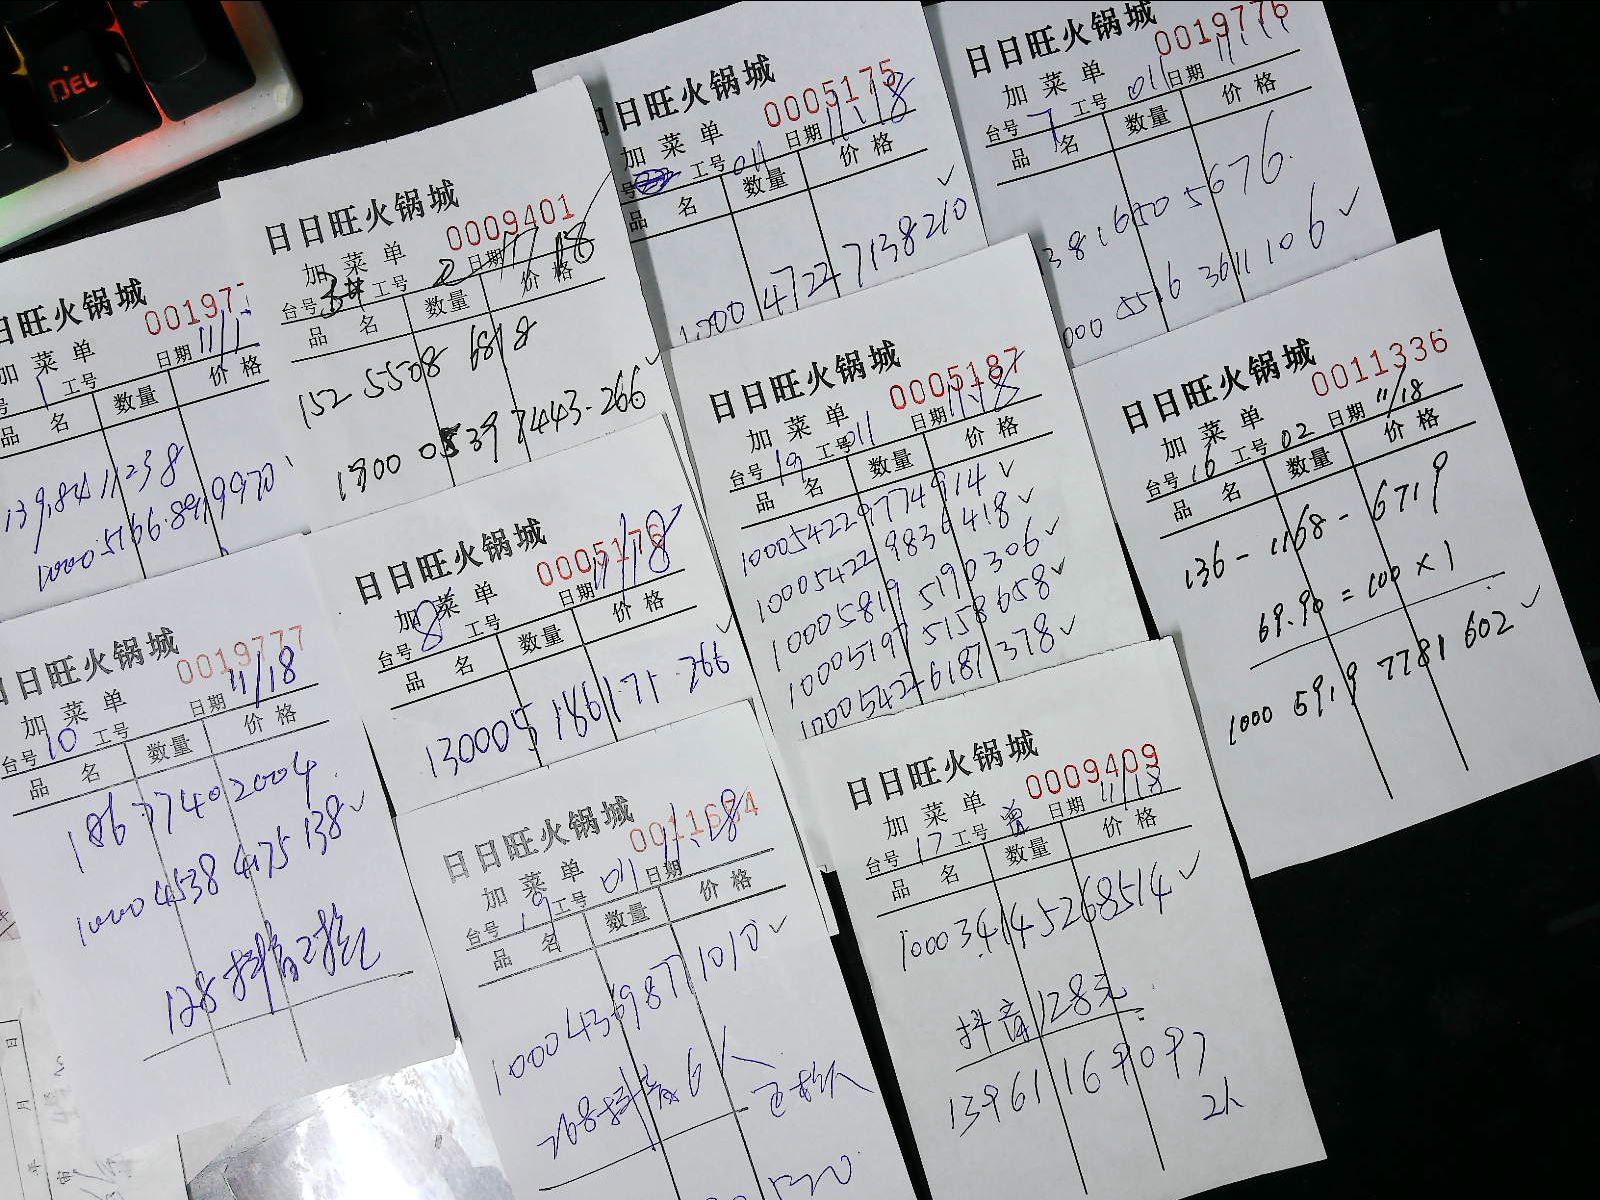 DEL
日日旺火锅城
0005175
加菜单
号 工号 011 日期 11.18
品名 数量 价格
1000 4722 7138210 ✓
日日旺火锅城
0019776
加菜单
台号 7 工号 011 日期
品名 数量 价格
381650 5676
000 5516 3611 106 ✓
日日旺火锅城
0009401
加菜单
台号 3# 工号 2 日期 11/18
品名 数量 价格
152 5508 6818
1300 0539 7443.266 ✓
日旺火锅城
001977
加菜单
号 1 工号 日期 11/1
品名 数量 价格
139.8411238
1000.5166.8919970
日日旺火锅城
0005187
加菜单
台号 19 工号 011 日期 11.18
品名 数量 价格
100054229774914 ✓
10005422 9836418 ✓
10005819 5190306 ✓
10005197 5158658 ✓
10005422 6187378 ✓
日日旺火锅城
0011336
加菜单
台号 16 工号 02 日期 11/18
品名 数量 价格
136-1168-6719
69.90=100×1
1000 5919 7781 602 ✓
日日旺火锅城
0005176
加菜单
台号 8 工号 日期 11/18
品名 数量 价格
130005 186171.266 ✓
日日旺火锅城
0019777
加菜单
台号 10 工号 日期 11/18
品名 数量 价格
186 7740 2004
1000 4538 4175 138 ✓
128抖音已捡
日日旺火锅城
加菜单
台号 19 工号 011 日期 11.18
品名 数量 价格
100043698771010 ✓
268抖音6人
日日旺火锅城
0009409
加菜单
台号 17 工号 日期 11/18
品名 数量 价格
1000 34145268514 ✓
抖音128元
13961169097
2人